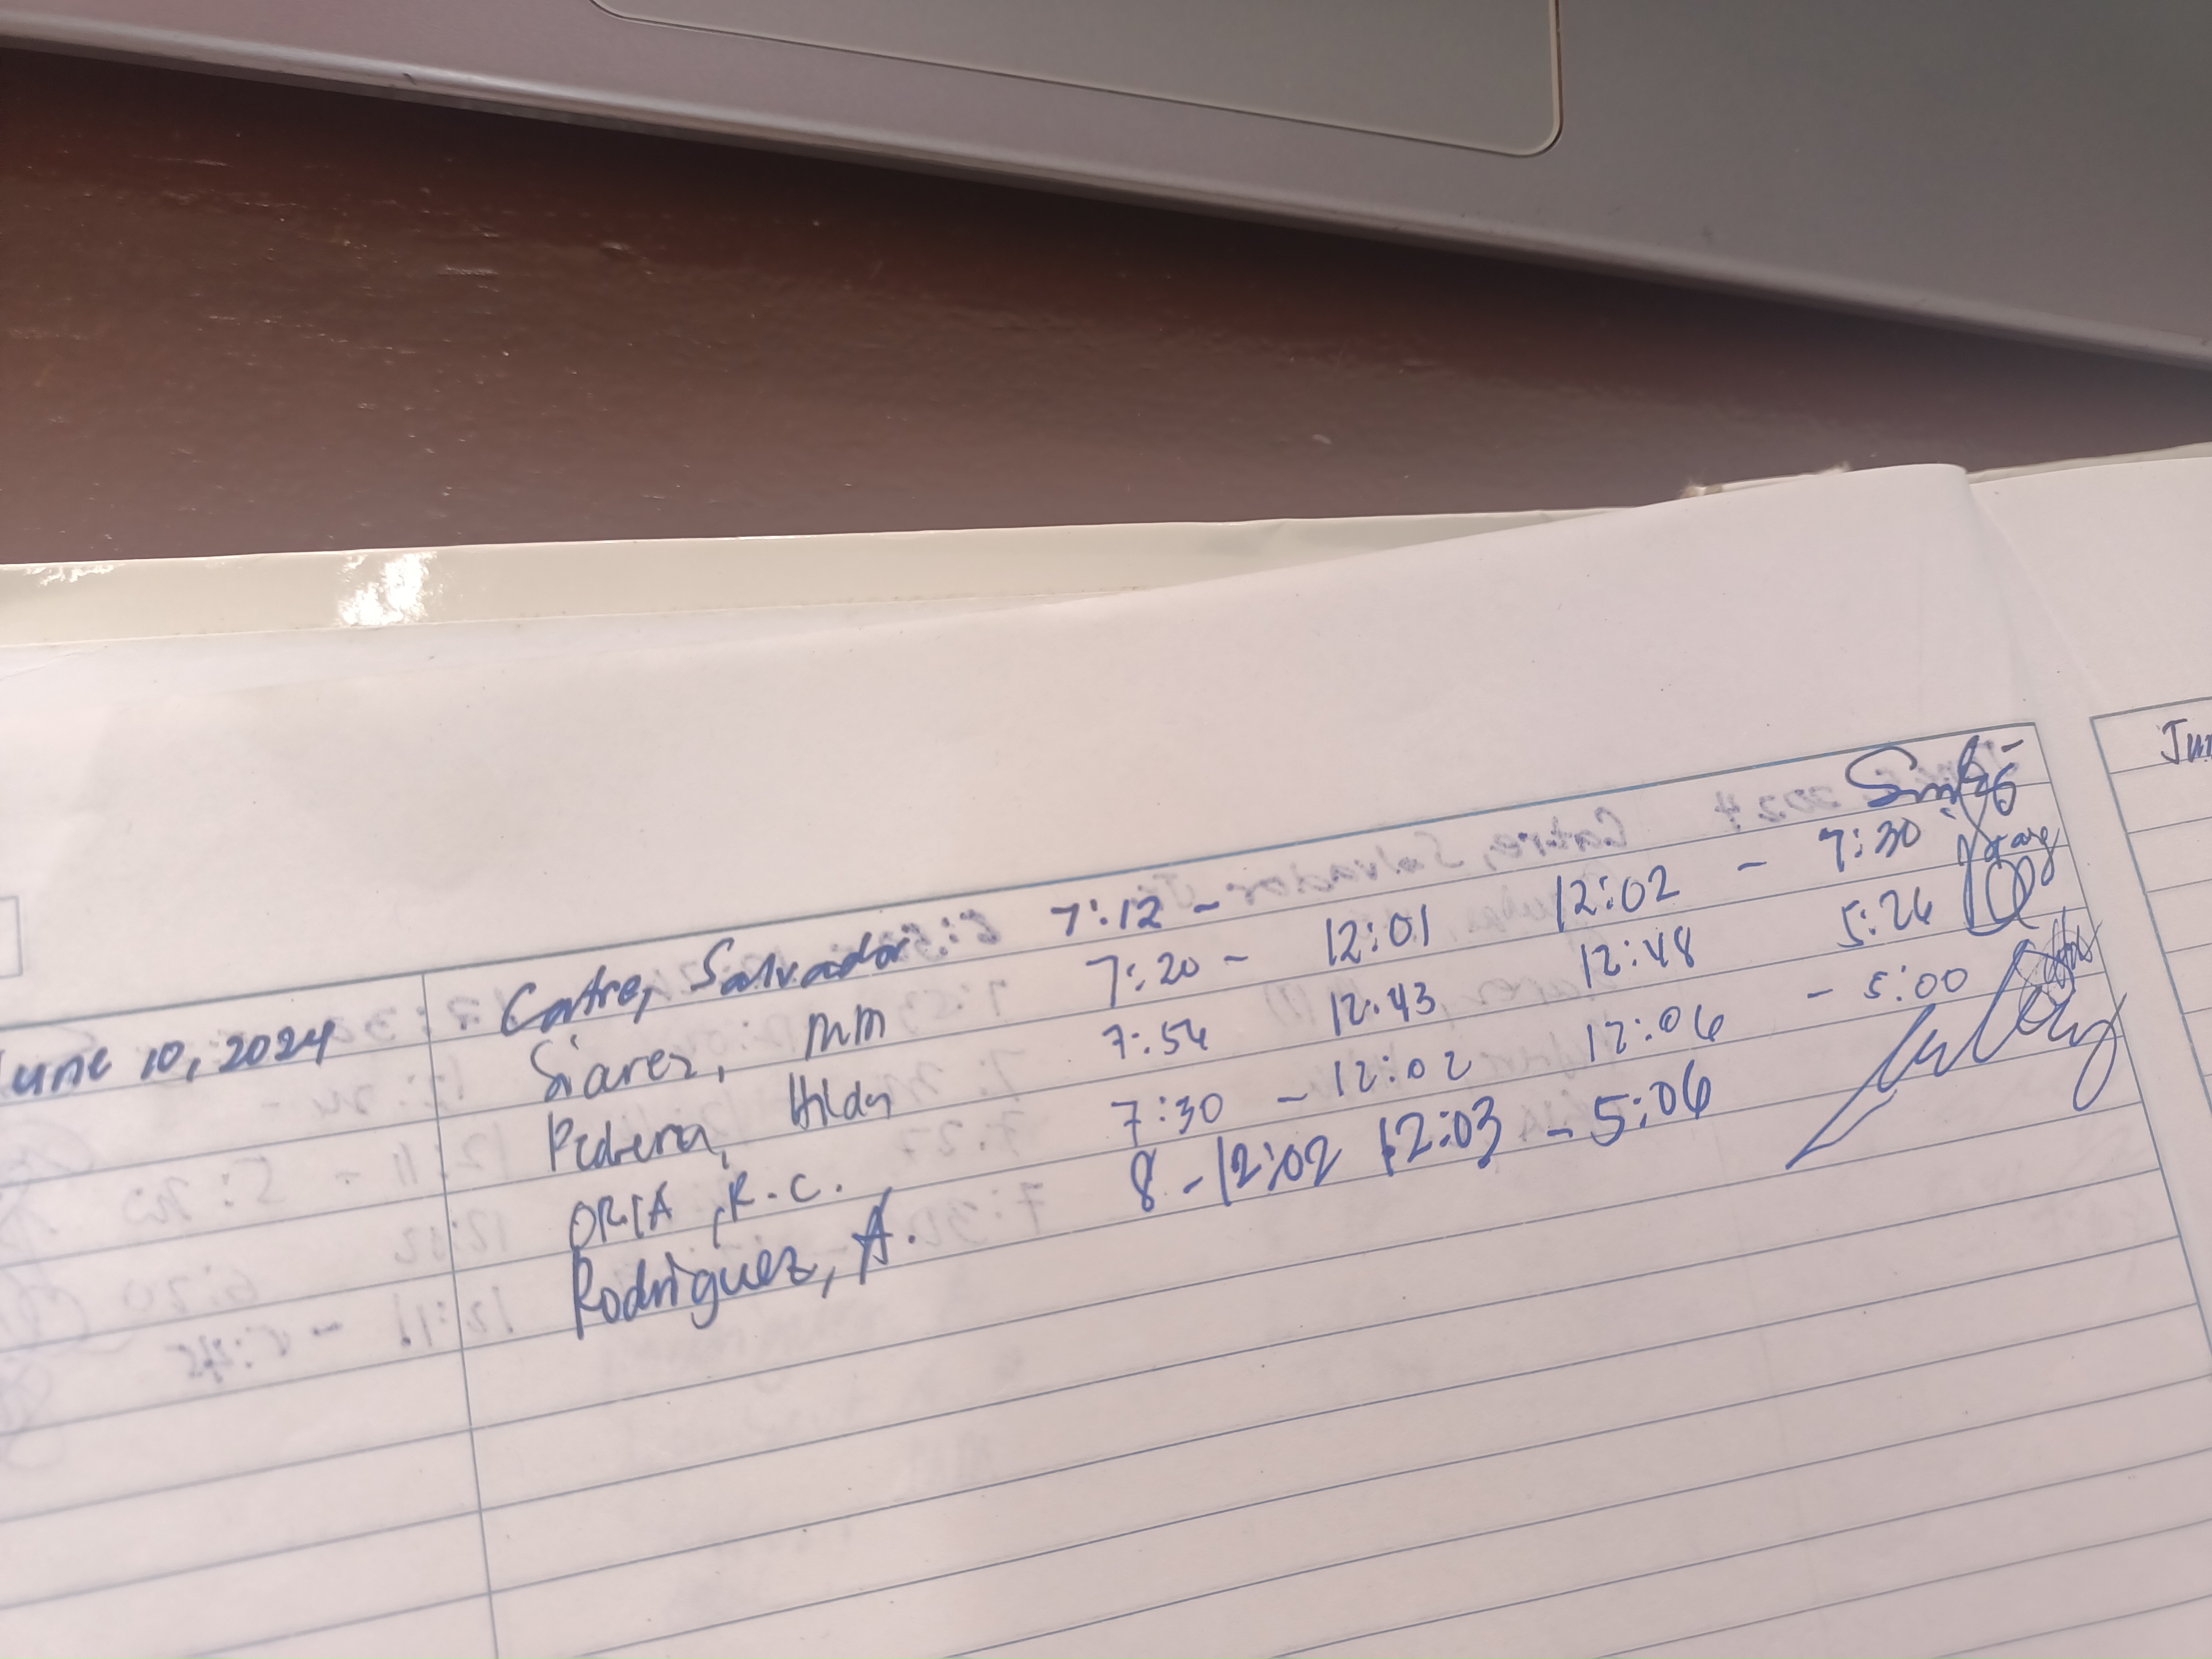 June 10, 2024 Catre, Salvador 7:12 -
Siarez, MM 7:20 - 12:01 12:02 - 7:30
Pedrera, Hilda 7:54 12:43 12:48 5:26
ORIA, R.C. 7:30 - 12:02 12:06 - 5:00
Rodriguez, A. 8 - 12:02 12:03 - 5:06